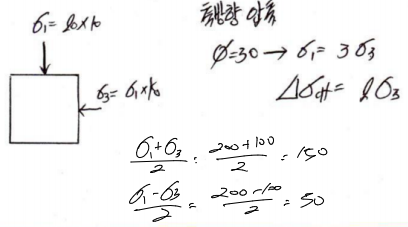 σ₁=20×10
σ₃= σ₁×K₀
압축
Ø=30 → σ₁= 3σ₃
= 2σ₃
σ₁+σ₃/2 = 200+100/2 = 150
σ₁-σ₃/2 = 200-100/2 = 50